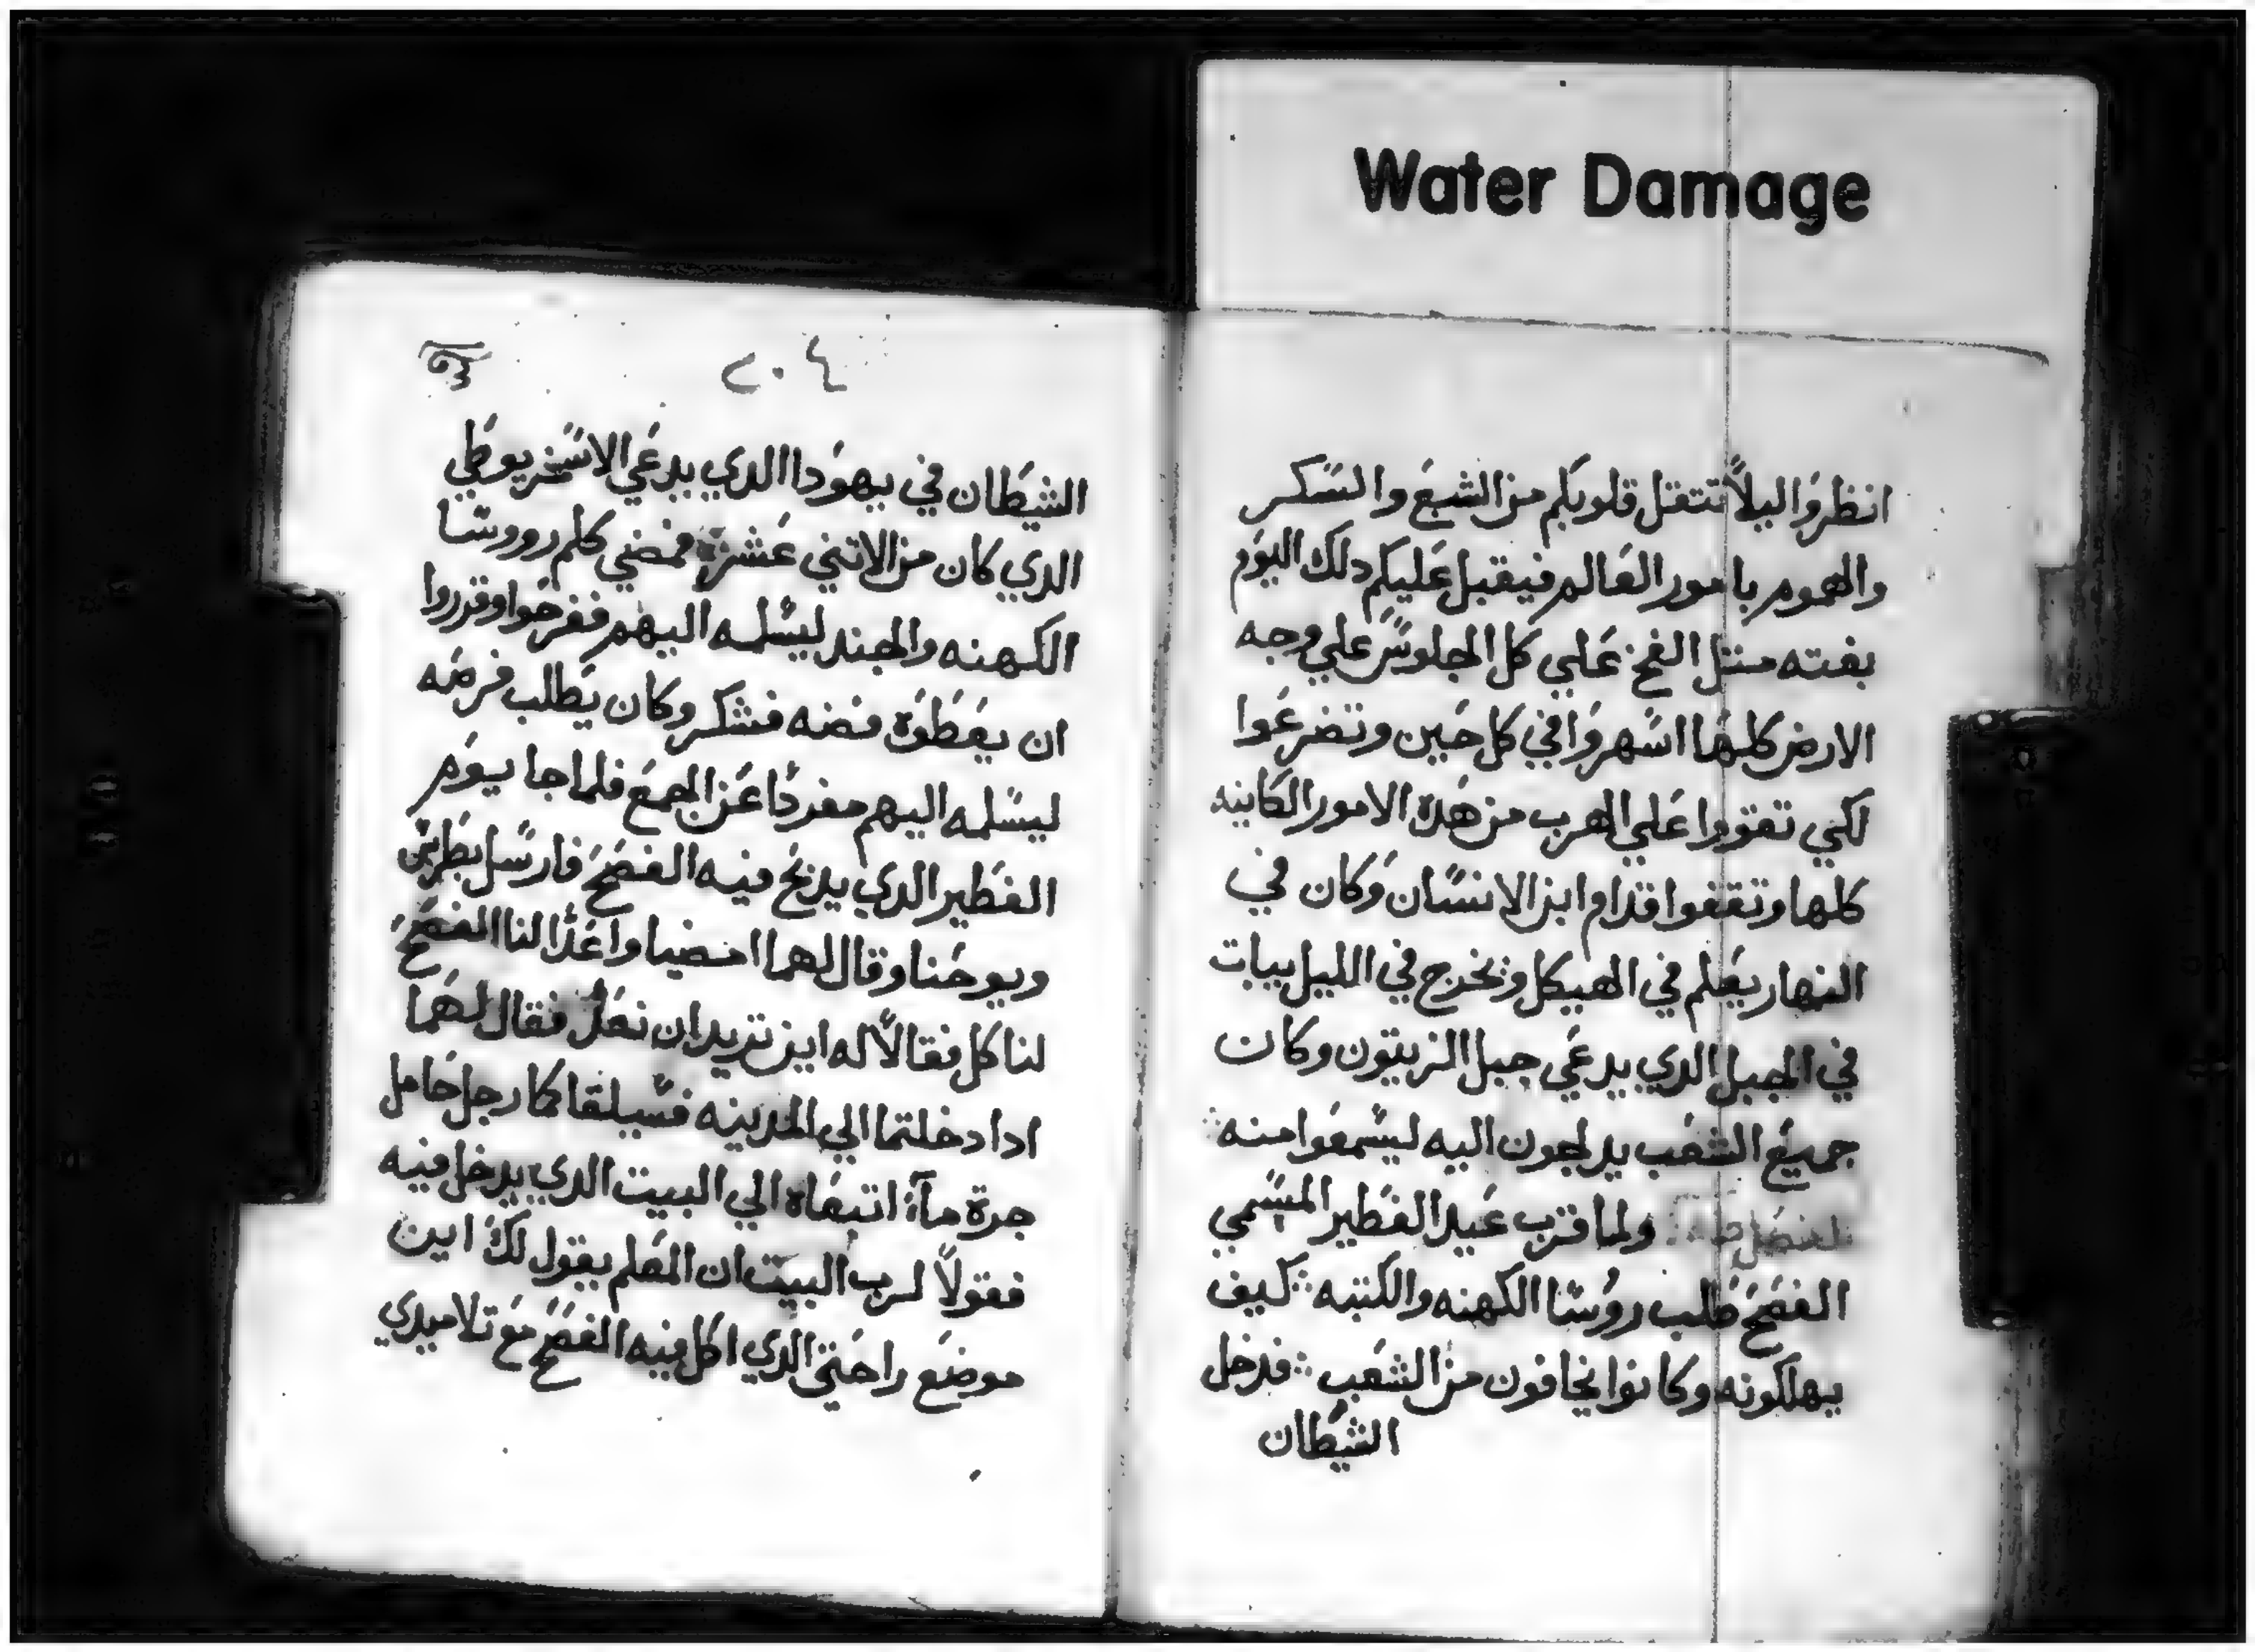 Water Damage
انظروا ليلاً تتقل قلوبكم من الشبع والسكر
والهموم بامور العالم فيقبل عليكم دلك اليوم
بغته متل الفخ علي كل الجلوس علي وجه
الارض كلها اسهروا في كل حين وتضرعوا
لكي تقووا علي الهرب من هده الامور الكاينه
كلها وتقفوا قدام ابن الانسان وكان في
النهار يعلم في الهيكل ويخرج في الليل يبات
في الجبل الدي يدعي جبل الزيتون وكان
جميع الشعب يدلجون اليه ليسمعوا منه
ولما قرب عيد الفطير المسمي
الفصح طلب روسا الكهنه والكتبه كيف
يهلكونه وكانوا يخافون من الشعب فدخل
الشيطان
٢٠٤
الشيطان في يهودا الدي يدعي الاسخريوطي
الدي كان من الاتني عشر فمضي كلم رووسا
الكهنه والجند ليسلمه اليهم ففرحوا وقرروا
ان يعطوه فضه فشكر وكان يطلب فرصه
ليسلمه اليهم مفردا عن الجمع فلما جا يوم
الفطير الدي يدبح فيه الفصح فارسل بطرس
ويوحنا وقال لهما امضيا واعدا لنا الفصح
لناكل فقالا له اين تريد ان نعد فقال لهما
ادا دخلتما الي المدينه فسيلقاكما رجل حامل
جرة مآء اتبعاه الي البيت الدي يدخل فيه
فقولا لرب البيت ان المعلم يقول لك اين
موضع راحتي الدي اكل فيه الفصح مع تلاميدي